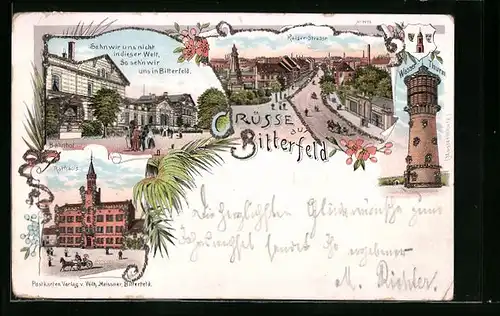 Sehn wir uns nicht
in dieser Welt,
So sehn wir
uns in Bitterfeld.
Kaiser-Strasse
Wasser Thurm
Bahnhof
GRÜSSE aus
Bitterfeld
Rathaus
Die herzlichsten Glückwünsche zum
sendet Ihr ergebener
M. Richter.
Postkarten Verlag v. Wilh. Meissner, Bitterfeld.